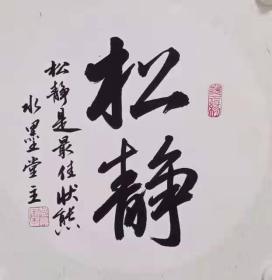 松静
松静是最佳状态
水墨堂主